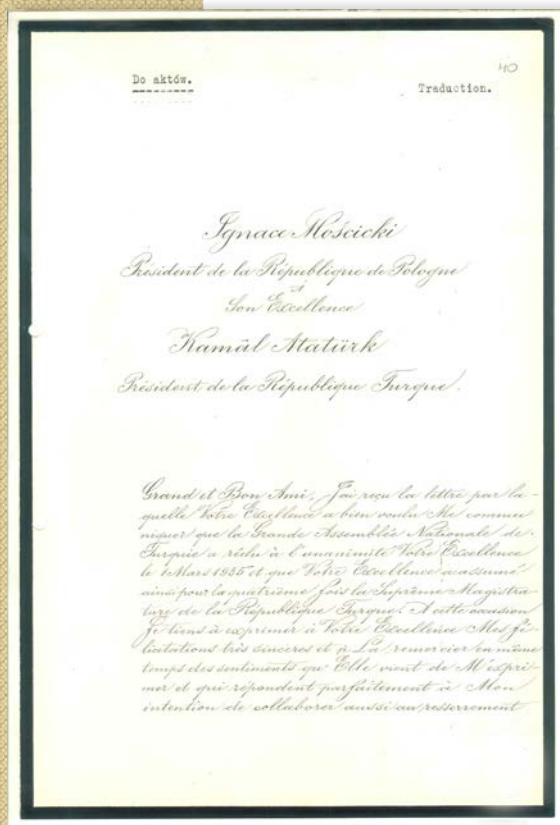 40
Do aktów.
Traduction.
Ignace Mościcki
Président de la République de Pologne
à
Son Excellence
Kamâl Atatürk
Président de la République Turque.
Grand et Bon Ami, J'ai reçu la lettre par la-
quelle Votre Excellence a bien voulu Me commu
niquer que la Grande Assemblée Nationale de
Turquie a réélu à l'unanimité Votre Excellence
le 1 Mars 1935 et que Votre Excellence a assumé
ainsi pour la quatrième fois la Suprême Magistra-
ture de la République Turque. A cette occasion
Je tiens à exprimer à Votre Excellence Mes fé-
licitations très sincères et à La remercier en même
temps des sentiments qu'Elle vient de M'expri-
mer et qui répondent parfaitement à Mon
intention de collaborer aussi au resserrement